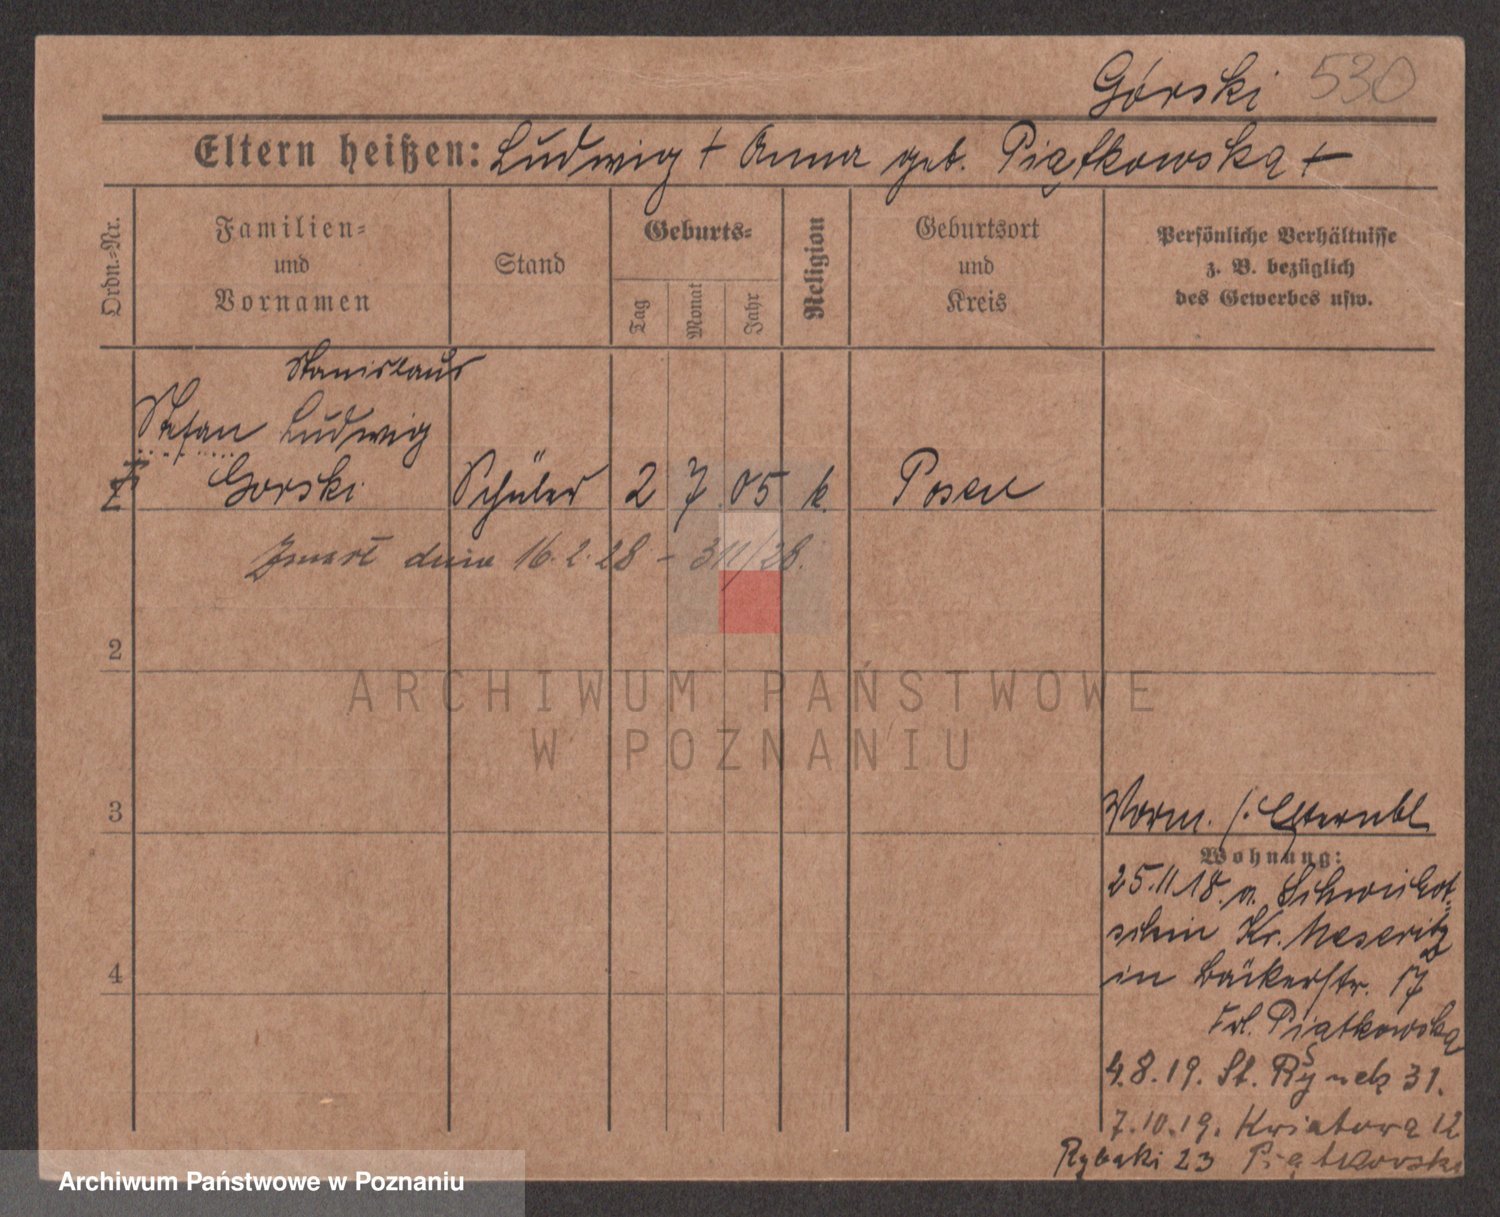 Górski 530
Eltern heißen: Ludwig + Anna geb. Piątkowska +
Ordn.-Nr.
Familien-
und
Vornamen
Stand
Geburts-
Tag
Monat
Jahr
Religion
Geburtsort
und
Kreis
Persönliche Verhältnisse
z. B. bezüglich
des Gewerbes usw.
Stanislaus
Stefan Ludwig
Gorski Schüler 2 7 05 k. Posen
Zmarł dnia 16.2.28 - 311/28.
2
3
4
Vorm. s. Elternbl
Wohnung:
25.11.18. a. Schwichot-
schin Kr. Meseritz
in Bäckerstr. 17
Frl. Piątkowska
4.8.19. St. Rynek 31.
7.10.19. Kwiatowa 12
Rybaki 23 Piątkowska
ARCHIWUM PAŃSTWOWE
W POZNANIU
Archiwum Państwowe w Poznaniu